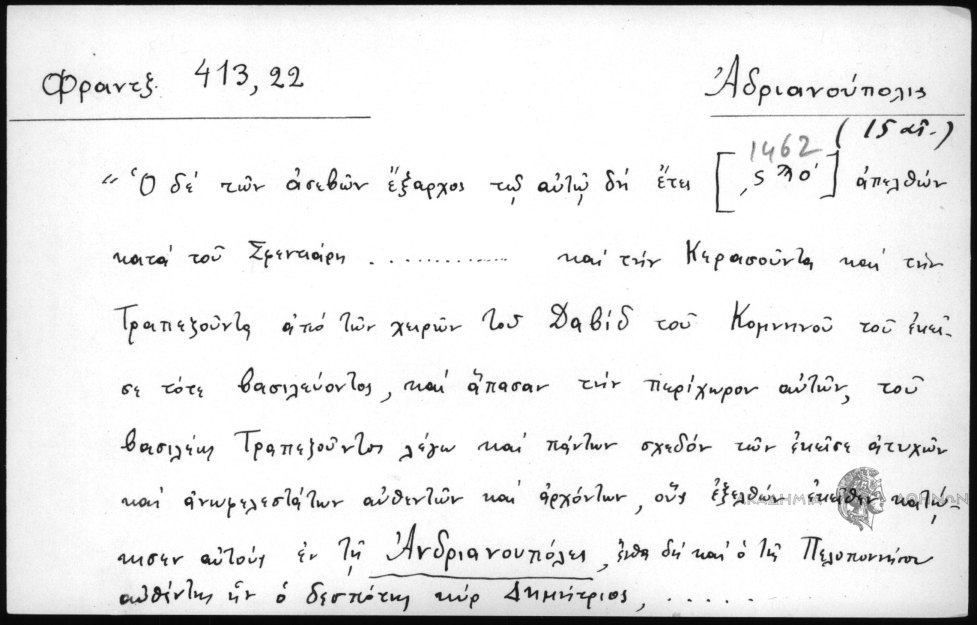 Φραντζ. 413,22
Ἀδριανούπολις
(15 αἰ.)
1462
"Ὁ δέ τῶν ἀσεβῶν ἔξαρχος τῷ αὐτῷ δή ἔτει [͵ϛϡο'] ἀπελθών
κατά τοῦ Σφεντιάρη ............... καί τήν Κερασοῦντα καί τήν
Τραπεζοῦντα ἀπό τῶν χειρῶν τοῦ Δαβίδ τοῦ Κομνηνοῦ τοῦ ἐκεῖ-
σε τότε βασιλεύοντος, καί ἅπασαν τήν περίχωρον αὐτῶν, τοῦ
βασιλέως Τραπεζοῦντος λέγω καί πάντων σχεδόν τῶν ἐκεῖσε ἀτυχῶν
καί ἀνωφελεστάτων αὐθεντῶν καί ἀρχόντων, οὕς ἐξελθών ἐκεῖθεν κατῴ-
κισεν αὐτούς ἐν τῇ Ἀνδριανουπόλει, ἔνθα δή καί ὁ τῆς Πελοποννήσου
αὐθέντης ἦν ὁ δεσπότης κύρ Δημήτριος, . . . . . .
ΑΚΑΔΗΜΙΑ ΑΘΗΝΩΝ